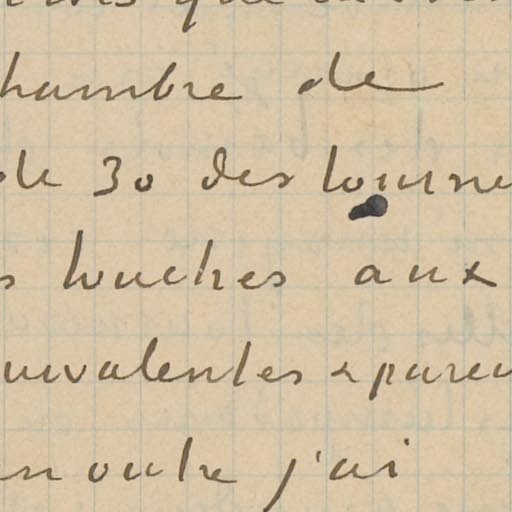 que
hambre de
de 30 des tourne
s touches aux
uivalentes & pareu
n outre j'ai